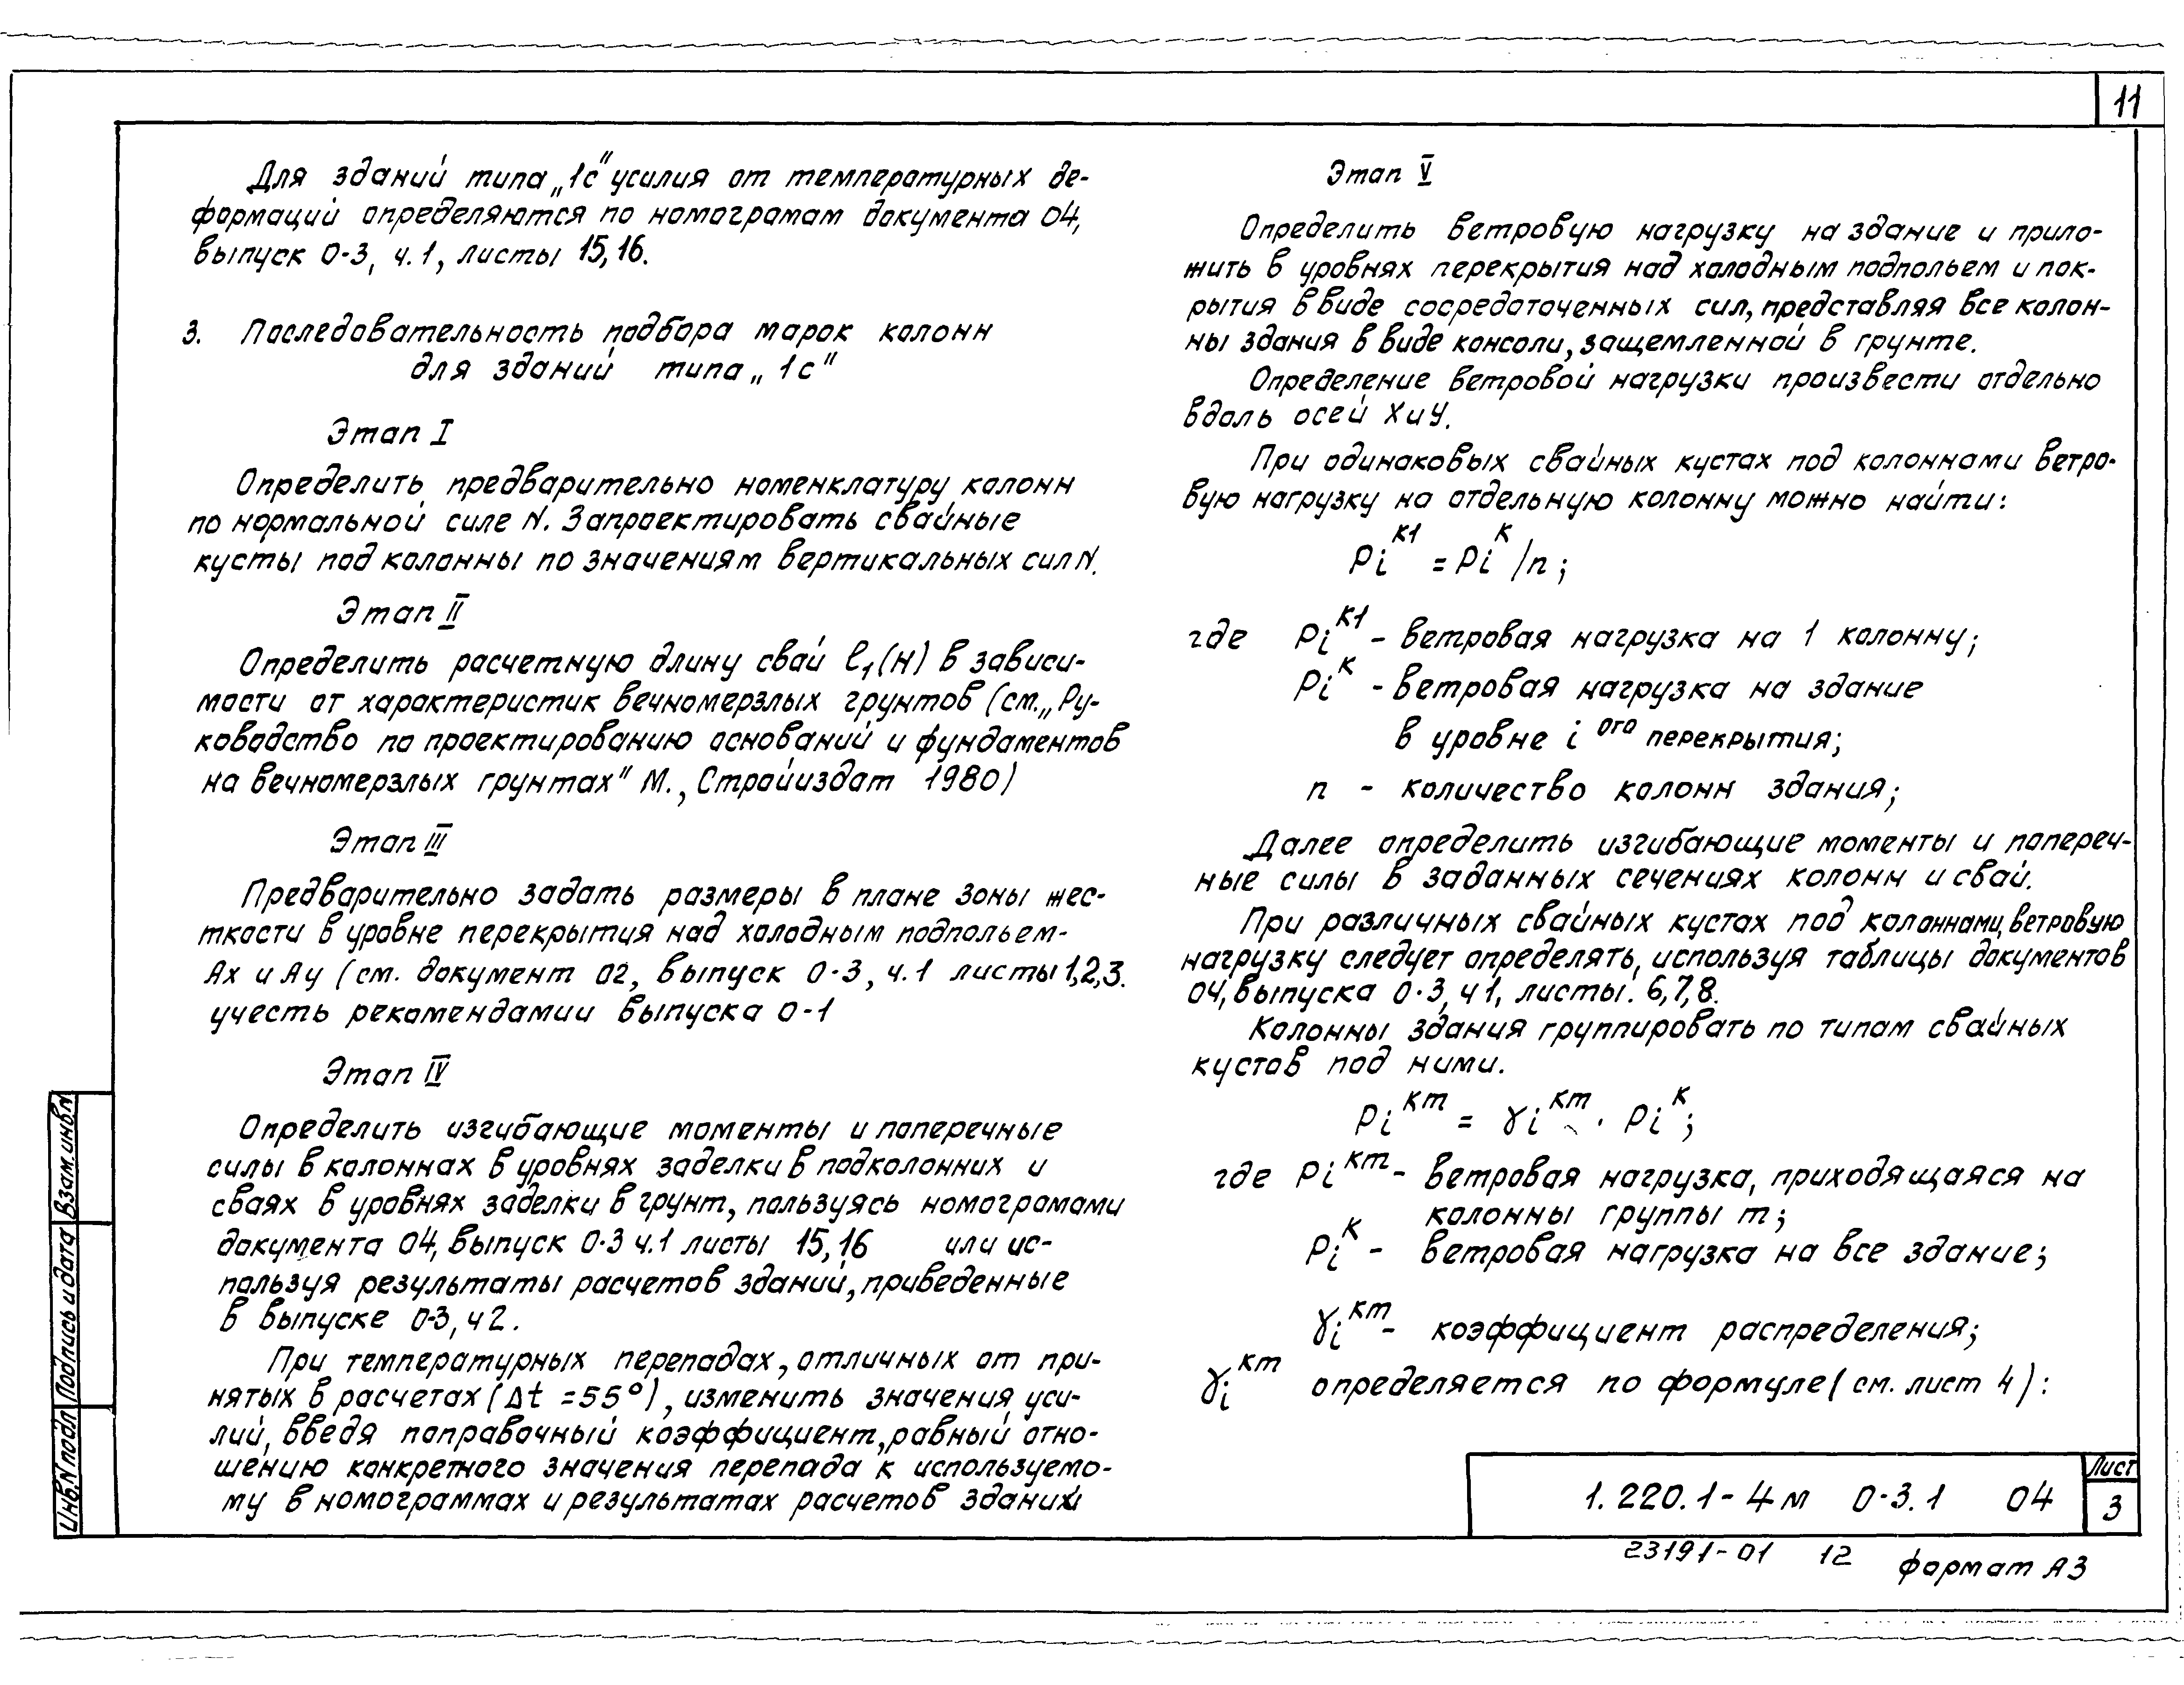 11
Для зданий типа „1с" усилия от температурных де-
формаций определяются по номограмам документа 04,
выпуск 0-3, ч.1, листы 15,16.
3. Последовательность подбора марок колонн
для зданий типа „1с"
Этап I
Определить предварительно номенклатуру колонн
по нормальной силе N. Запроектировать свайные
кусты под колонны по значениям вертикальных сил N.
Этап II
Определить расчетную длину свай ℓ₁(н) в зависи-
мости от характеристик вечномерзлых грунтов (см. „Ру-
ководство по проектированию оснований и фундаментов
на вечномерзлых грунтах" М., Стройиздат 1980)
Этап III
Предварительно задать размеры в плане зоны жес-
ткости в уровне перекрытия над холодным подпольем-
Ах и Ау (см. документ 02, выпуск 0-3, ч.1 листы 1,2,3.
учесть рекомендамии выпуска 0-1
Этап IV
Определить изгибающие моменты и поперечные
силы в колоннах в уровнях заделки в подколонних и
сваях в уровнях заделки в грунт, пользуясь номограмами
документа 04, выпуск 0-3 ч.1 листы 15,16 или ис-
пользуя результаты расчетов зданий, приведенные
в выпуске 0-3, ч 2.
При температурных перепадах, отличных от при-
нятых в расчетах (Δt =55°), изменить значения уси-
лий, введя поправочный коэффициент, равный отно-
шению конкретного значения перепада к используемо-
му в номограммах и результатах расчетов зданий
Этап V
Определить ветровую нагрузку на здание и прило-
жить в уровнях перекрытия над холодным подпольем и пок-
рытия в виде сосредоточенных сил, представляя все колон-
ны здания в виде консоли, защемленной в грунте.
Определение ветровой нагрузки произвести отдельно
вдоль осей Х и У.
При одинаковых свайных кустах под колоннами ветро-
вую нагрузку на отдельную колонну можно найти:
Pi^К1 = Pi^К /n ;
где Pi^К1 - ветровая нагрузка на 1 колонну;
Pi^К - ветровая нагрузка на здание
в уровне i ого перекрытия;
n - количество колонн здания;
Далее определить изгибающие моменты и попереч-
ные силы в заданных сечениях колонн и свай.
При различных свайных кустах под колоннами, ветровую
нагрузку следует определять, используя таблицы документов
04, выпуска 0-3, ч 1, листы. 6,7,8.
Колонны здания группировать по типам свайных
кустов под ними.
Pi^Кm = γi^Кm · Pi^К;
где Pi^Кm - ветровая нагрузка, приходящаяся на
колонны группы m;
Pi^К - ветровая нагрузка на все здание;
γi^Кm - коэффициент распределения;
γi^Кm определяется по формуле (см. лист 4):
Взам.инв.N
Подпись и дата
Инв.N подл
1.220.1-4м 0-3.1 04
Лист
3
23191-01 12 формат А3